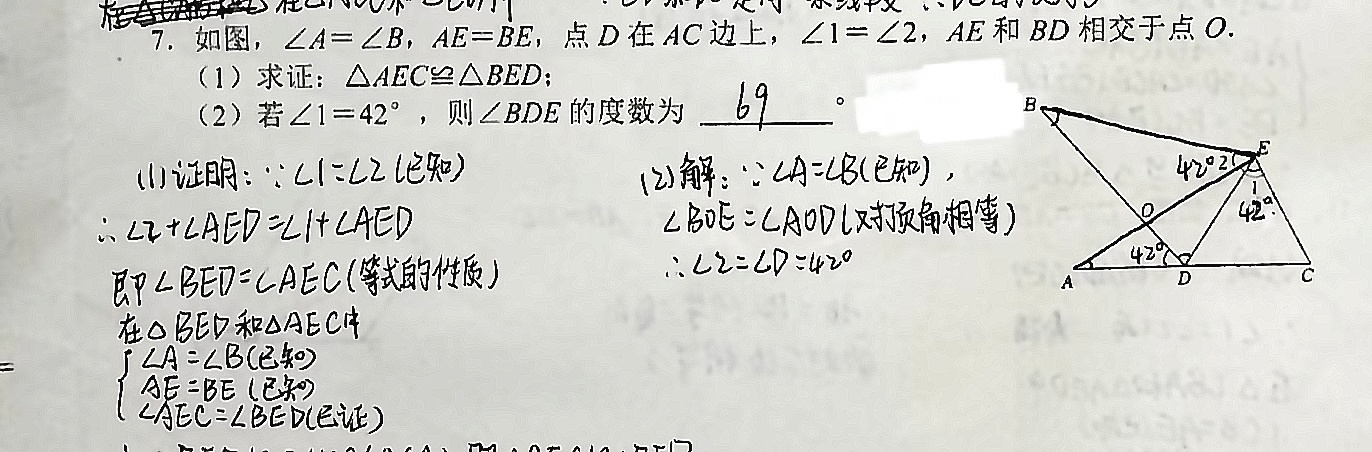 7. 如图，∠A=∠B，AE=BE，点D在AC边上，∠1=∠2，AE和BD相交于点O.
（1）求证：△AEC≌△BED；
（2）若∠1=42°，则∠BDE的度数为 69 °
(1)证明：∵∠1=∠2(已知)
∴∠2+∠AED=∠1+∠AED
即∠BED=∠AEC(等式的性质)
在△BED和△AEC中
∠A=∠B(已知)
AE=BE(已知)
∠AEC=∠BED(已证)
(2)解：∵∠A=∠B(已知)，
∠BOE=∠AOD(对顶角相等)
∴∠2=∠D=42°
B
E
42°2
1
42°
O
42°
A
D
C